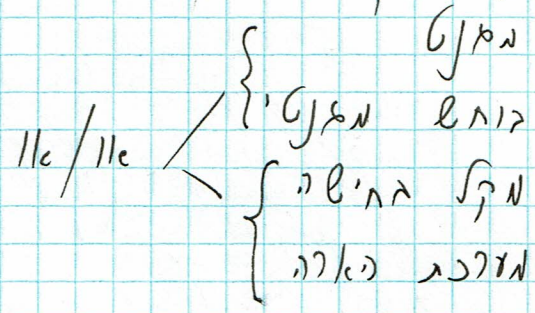 מגנט
בוחש מגנטי
או/או
מקל בחישה
מערכת הארה